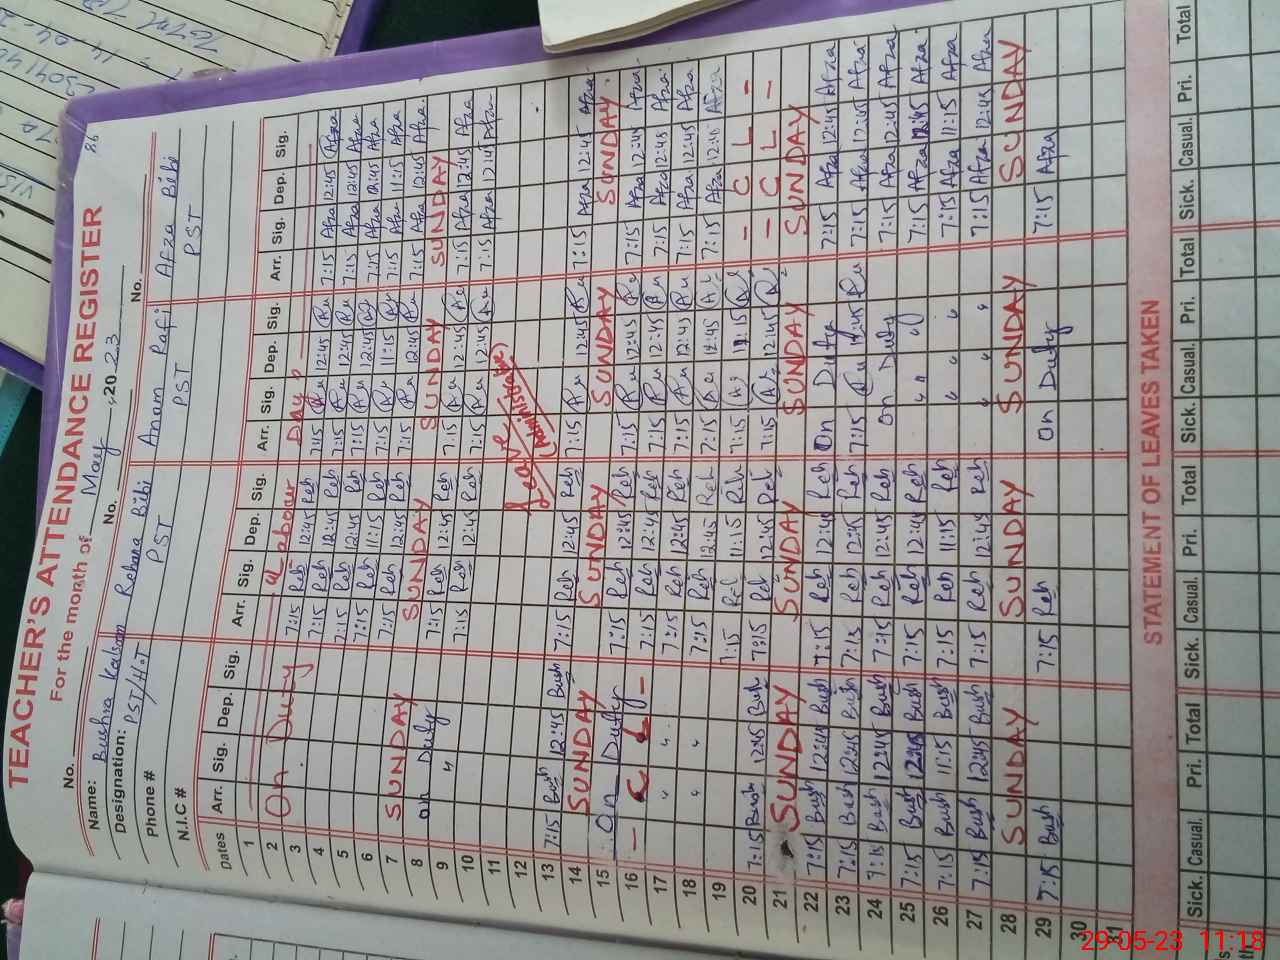 TEACHER'S ATTENDANCE REGISTER
For the month of May, 2023
No. No. No.
Name: Bushra Kalsom Rehana Bibi Anam Rafi Afza Bibi
Designation: PST/H.T PST PST PST
Phone #
N.I.C #
Dates Arr. Sig. Dep. Sig. Arr. Sig. Dep. Sig. Arr. Sig. Dep. Sig. Arr. Sig. Dep. Sig.
1 Labour Day
2 On Duty 7:15 Reh 12:45 Reh 7:15 12:45 7:15 Afza 12:45 Afza
3 7:15 Reh 12:45 Reh 7:15 12:45 7:15 Afza 12:45 Afza
4 7:15 Reh 12:45 Reh 7:15 12:45 7:15 Afza 12:45 Afza
5 7:15 Reh 11:15 Reh 7:15 11:15 7:15 Afza 11:15 Afza
6 7:15 Reh 12:45 Reh 7:15 12:45 7:15 Afza 12:45 Afza
7 SUNDAY SUNDAY SUNDAY SUNDAY
8 On Duty 7:15 Reh 12:45 Reh 7:15 12:45 7:15 Afza 12:45 Afza
9 " 7:15 Reh 12:45 Reh 7:15 12:45 7:15 Afza 12:45 Afza
10
11 Leave (Administrative)
12
13 7:15 Bush 12:45 Bush 7:15 Reh 12:45 Reh 7:15 12:45 7:15 Afza 12:45 Afza
14 SUNDAY SUNDAY SUNDAY SUNDAY
15 On Duty 7:15 Reh 12:45 Reh 7:15 12:45 7:15 Afza 12:45 Afza
16 - C L - 7:15 Reh 12:45 Reh 7:15 12:45 7:15 Afza 12:45 Afza
17 " " 7:15 Reh 12:45 Reh 7:15 12:45 7:15 Afza 12:45 Afza
18 " " 7:15 Reh 12:45 Reh 7:15 12:45 7:15 Afza 12:45 Afza
19 7:15 Reh 11:15 Reh 7:15 11:15 - C L -
20 7:15 Bush 12:45 Bush 7:15 Reh 12:45 Reh 7:15 12:45 - C L -
21 SUNDAY SUNDAY SUNDAY SUNDAY
22 7:15 Bush 12:45 Bush 7:15 Reh 12:45 Reh On Duty 7:15 Afza 12:45 Afza
23 7:15 Bush 12:45 Bush 7:15 Reh 12:45 Reh 7:15 12:45 7:15 Afza 12:45 Afza
24 7:15 Bush 12:45 Bush 7:15 Reh 12:45 Reh On Duty 7:15 Afza 12:45 Afza
25 7:15 Bush 12:45 Bush 7:15 Reh 12:45 Reh " " 7:15 Afza 12:45 Afza
26 7:15 Bush 11:15 Bush 7:15 Reh 11:15 Reh " " " 7:15 Afza 11:15 Afza
27 7:15 Bush 12:45 Bush 7:15 Reh 12:45 Reh " " " 7:15 Afza 12:45 Afza
28 SUNDAY SUNDAY SUNDAY SUNDAY
29 7:15 Bush 7:15 Reh On Duty 7:15 Afza
30
31
STATEMENT OF LEAVES TAKEN
Sick. Casual. Pri. Total Sick. Casual. Pri. Total Sick. Casual. Pri. Total Sick. Casual. Pri. Total
29-05-23 11:18